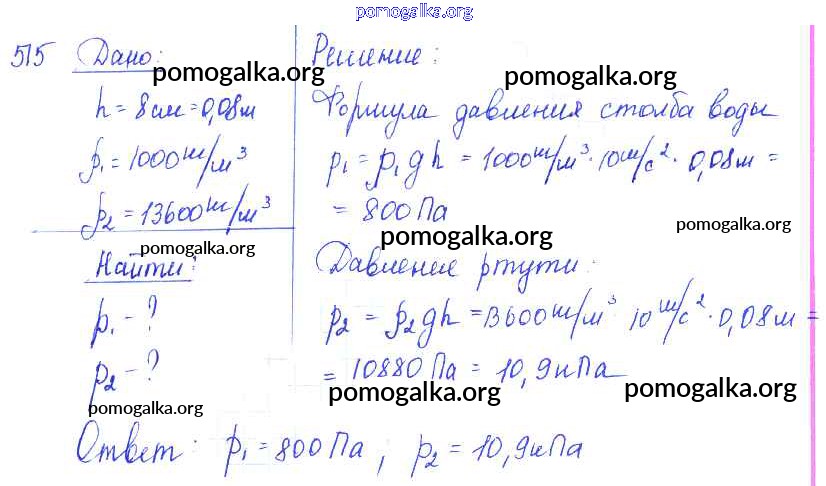 pomogalka.org
515 Дано:
pomogalka.org
h = 8см = 0,08м
ρ₁ = 1000кг/м³
ρ₂ = 13600кг/м³
pomogalka.org
Найти:
p₁ - ?
p₂ - ?
pomogalka.org
Решение:
pomogalka.org
Формула давления столба воды
p₁ = ρ₁gh = 1000кг/м³ · 10м/с² · 0,08м =
= 800 Па
pomogalka.org
pomogalka.org
Давление ртути:
p₂ = ρ₂gh = 13600кг/м³ 10м/с² · 0,08м =
= 10880 Па = 10,9кПа
pomogalka.org
pomogalka.org
Ответ: p₁ = 800 Па; p₂ = 10,9кПа